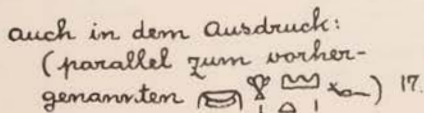 auch in dem Ausdruck:
(parallel zum vorher-
genannten ) 17.